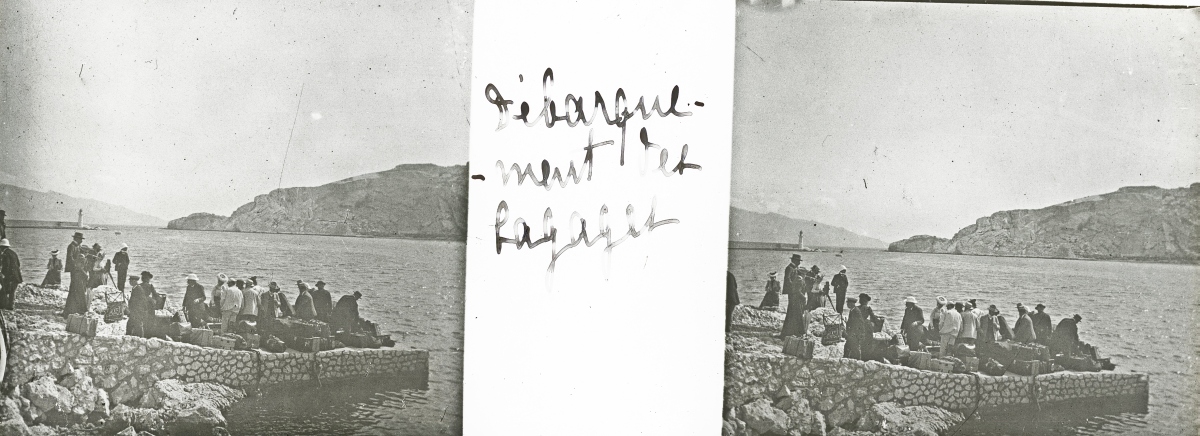 Débarque-
-ment des
bagages